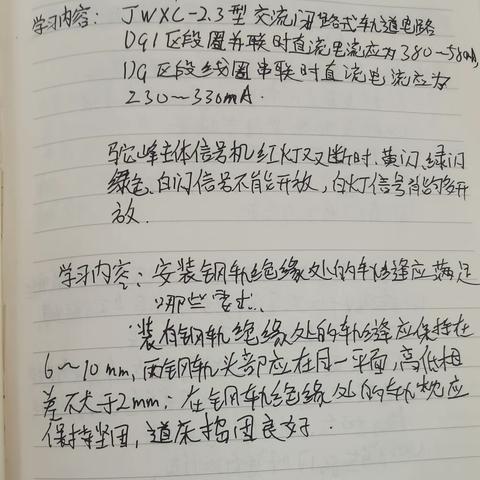 学习内容：JWXC-2.3型交流闭路式轨道电路
DG1区段圈并联时直流电流应为380~580mA,
DG区段线圈串联时直流电流应为
230~330mA.
驼峰主体信号机红灯双断时、黄闪、绿闪
绿色、白闪信号不能开放，白灯信号能够开
放.
学习内容：安装钢轨绝缘处的轨缝应满足
哪些要求.
装有钢轨绝缘处的轨缝应保持在
6~10mm，两钢轨头部应在同一平面，高低相
差不大于2mm；在钢轨绝缘处的轨枕应
保持坚固，道床捣固良好.